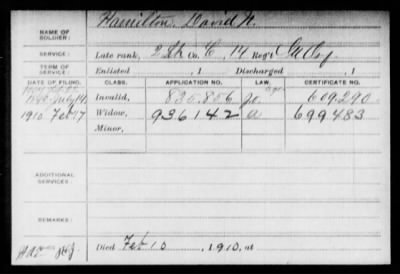 NAME OF SOLDIER: Hamilton, David N.
SERVICE: Late rank, Co. C, 14 Reg't Ill Cav
TERM OF SERVICE: Enlisted , 1 Discharged , 1
DATE OF FILING. CLASS. APPLICATION NO. LAW. CERTIFICATE NO.
1890 July 14 Invalid, 830.856 609.290
1910 Feb 17 Widow, 936142 a 699483
Minor,
ADDITIONAL SERVICES:
REMARKS:
Died Feb 10 , 1910, at